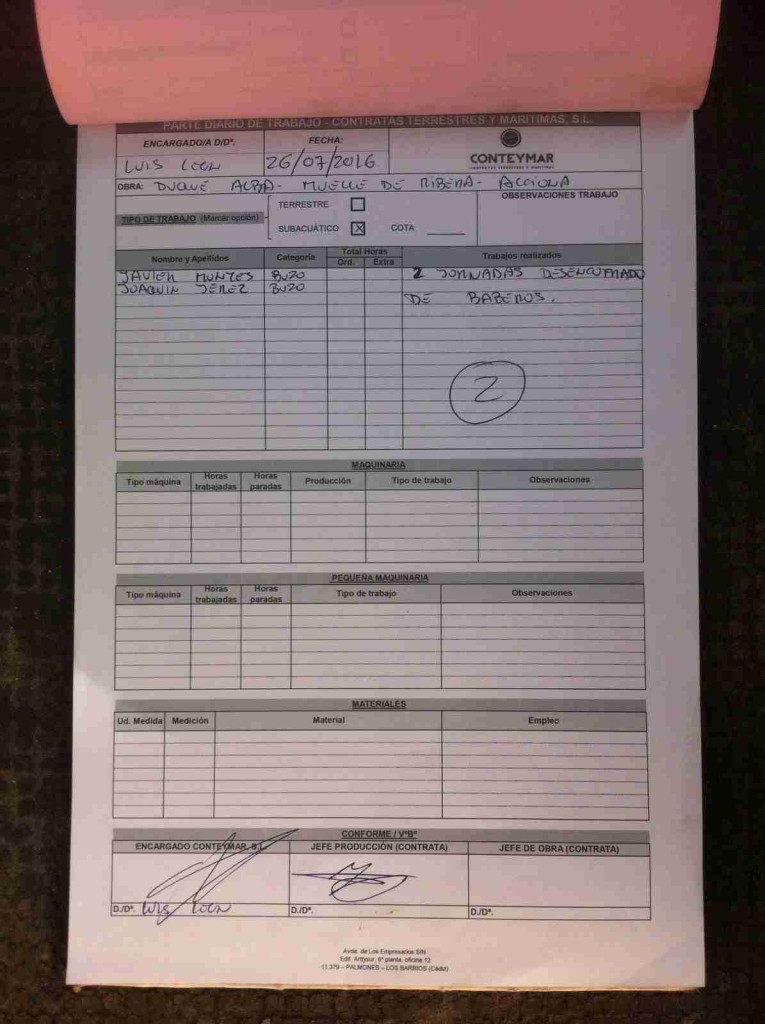 PARTE DIARIO DE TRABAJO - CONTRATAS TERRESTRES Y MARÍTIMAS, S.L.
ENCARGADO/A D/Dª.
FECHA:
LUIS LEON
26/07/2016
CONTEYMAR
CONTRATAS TERRESTRES Y MARÍTIMAS
OBRA: DUQUE ALBA - MUELLE DE RIBERA - ACCIONA
TIPO DE TRABAJO (Marcar opción)
TERRESTRE
SUBACUÁTICO X COTA
OBSERVACIONES TRABAJO
Nombre y Apellidos Categoría Total Horas Trabajos realizados
Ord. Extra
JAVIER MONTES BUZO 2 JORNADAS DESENCOFRADO
JOAQUIN JEREZ BUZO
DE BABEROS.
2
MAQUINARIA
Tipo máquina Horas trabajadas Horas paradas Producción Tipo de trabajo Observaciones
PEQUEÑA MAQUINARIA
Tipo máquina Horas trabajadas Horas paradas Tipo de trabajo Observaciones
MATERIALES
Ud. Medida Medición Material Empleo
CONFORME / VºBº
ENCARGADO CONTEYMAR, S.L. JEFE PRODUCCIÓN (CONTRATA) JEFE DE OBRA (CONTRATA)
D./Dª. LUIS LEON D./Dª. D./Dª.
Avda. de Los Empresarios S/N
Edif. Arttysur, 6ª planta, oficina 12
11.379 – PALMONES – LOS BARRIOS (Cádiz)